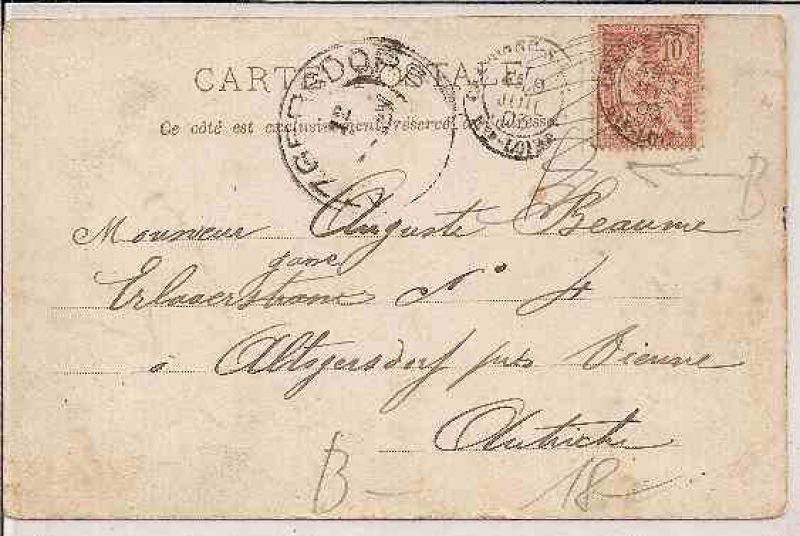 CARTE POSTALE
Ce côté est exclusivement réservé à l'adresse
10
Monsieur Auguste Beaume
gasse
Erlaaerstrasse N° 4
à Altzgersdorf près Vienne
Autriche
B
B-
18-